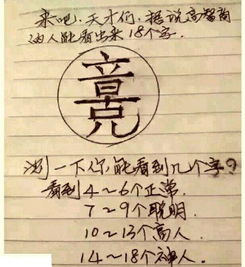 来吧，天才们，据说高智商
的人能看出来18个字.
测一下你能看到几个字？
看到4～6个正常.
7～9个聪明.
10～13个高人.
14～18个神人.